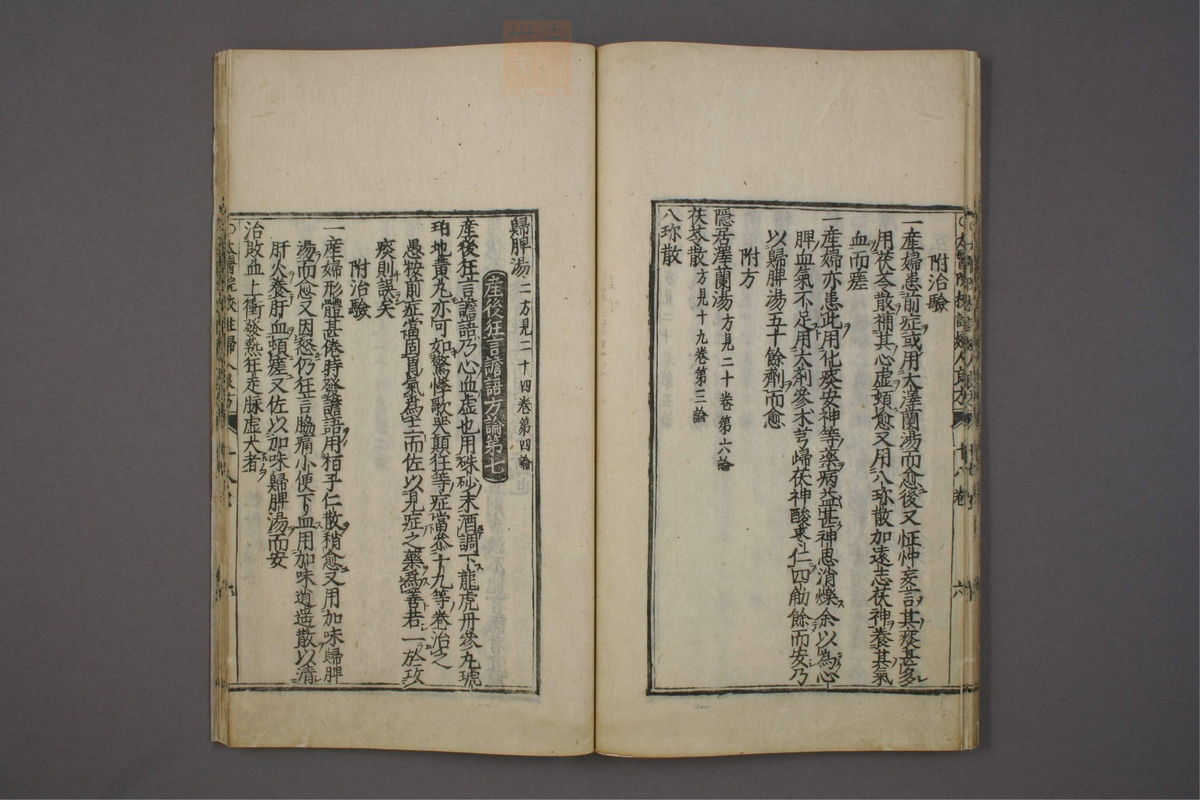 附治驗
一產婦患前症或用大澤蘭湯而愈後又怔忡妄言其痰甚多
用茯苓散補其心虛頓愈又用八珍散加遠志茯神養其氣
血而瘥
一產婦亦患此用化痰安神等藥病益甚神思消爍余以為心
脾血氣不足用大劑參朮芎歸茯神酸棗仁四觔餘而安乃
以歸脾湯五十餘劑而愈
附方
隱居澤蘭湯方見二十卷第六論
茯苓散方見十九卷第三論
八珎散
歸脾湯二方見二十四卷第四論
產後狂言譫語方論第七
產後狂言譫語乃心血虛也用硃砂末酒調下龍虎丹參丸琥
珀地黃丸亦可如驚悸歌哭顛狂等症當叅十九等卷治之
愚按前症當固胃氣為主而佐以見症之藥為善若一於攻
痰則誤矣
附治驗
一產婦形體甚倦時發譫語用栢子仁散稍愈又用加味歸脾
湯而愈又因怒仍狂言脇痛小便下血用加味逍遥散以清
肝火養肝血頓瘥又佐以加味歸脾湯而安
治敗血上衝發熱狂走脉虛大者